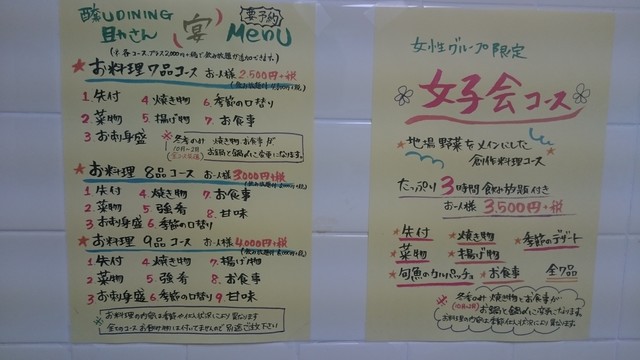 酔U DINING
財やさん
宴
要予約
MENU
(※各コース、プラス2,000円+税で飲み放題が追加できます。)
★お料理7品コース お一人様 2,500円+税
1 先付 4 焼き物 6 季節の口替り
2 菜物 5 揚げ物 7 お食事
3 お刺身盛
※冬季のみ 焼き物、お食事が
お鍋と鍋〆に変更になります。
★お料理 8品コース お一人様 3,000円+税
1 先付 4 焼き物 7 お食事
2 菜物 5 強肴 8 甘味
3 お刺身盛 6 季節の口替り
★お料理 9品コース お一人様 4,000円+税
1 先付 4 焼き物 7 揚げ物
2 菜物 5 強肴 8 お食事
3 お刺身盛 6 季節の口替り 9 甘味
お料理の内容は季節や仕入状況により異なります
女性グループ限定
女子会コース
★地場野菜をメインにした
創作料理コース
たっぷり3時間飲み放題付き
お一人様 3,500円+税
★先付 ★焼き物 ★季節のデザート
★菜物 ★揚げ物
★旬魚のカルパッチョ ★お食事 全7品
※冬季のみ 焼き物とお食事が
お鍋と鍋〆に変更になります。
お料理の内容は季節、仕入状況により異なります。